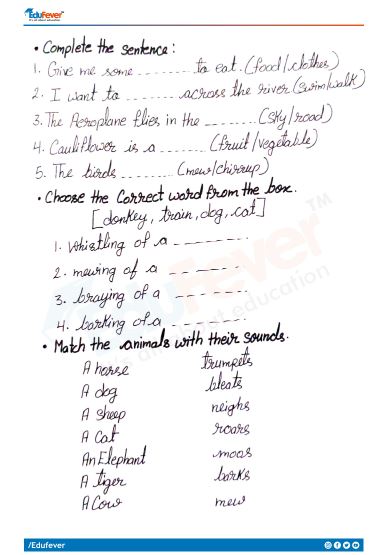 EduFever
• Complete the sentence:
1. Give me some -------- to eat. (food/clothes)
2. I want to -------- across the river (swim/walk)
3. The Aeroplane flies in the -------- (sky/road)
4. Cauliflower is a -------- (fruit/vegetable)
5. The birds -------- (mew/chirrup)
• Choose the Correct word from the box.
[donkey, train, dog, cat]
1. whistling of a --------
2. mewing of a --------
3. braying of a --------
4. barking of a --------
• Match the animals with their sounds.
A horse trumpets
A dog bleats
A sheep neighs
A Cat roars
An Elephant moos
A tiger barks
A Cow mew
EduFever TM
/Edufever